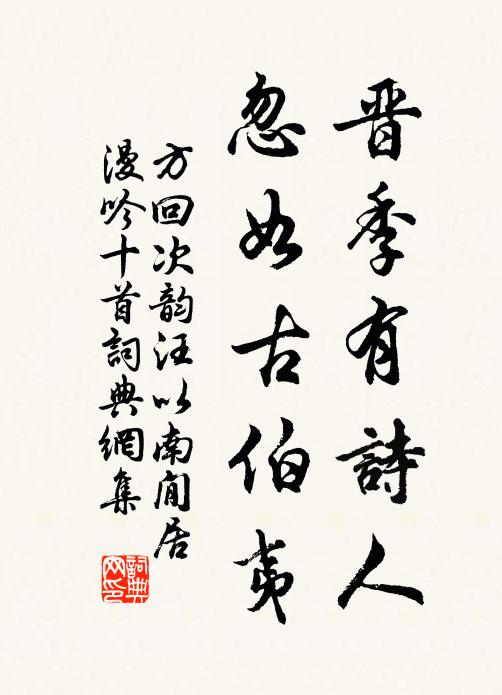 晋季有詩人
忽如古伯夷
方回次韵汪以南閒居
漫吟十首詞典網集
詞典网印